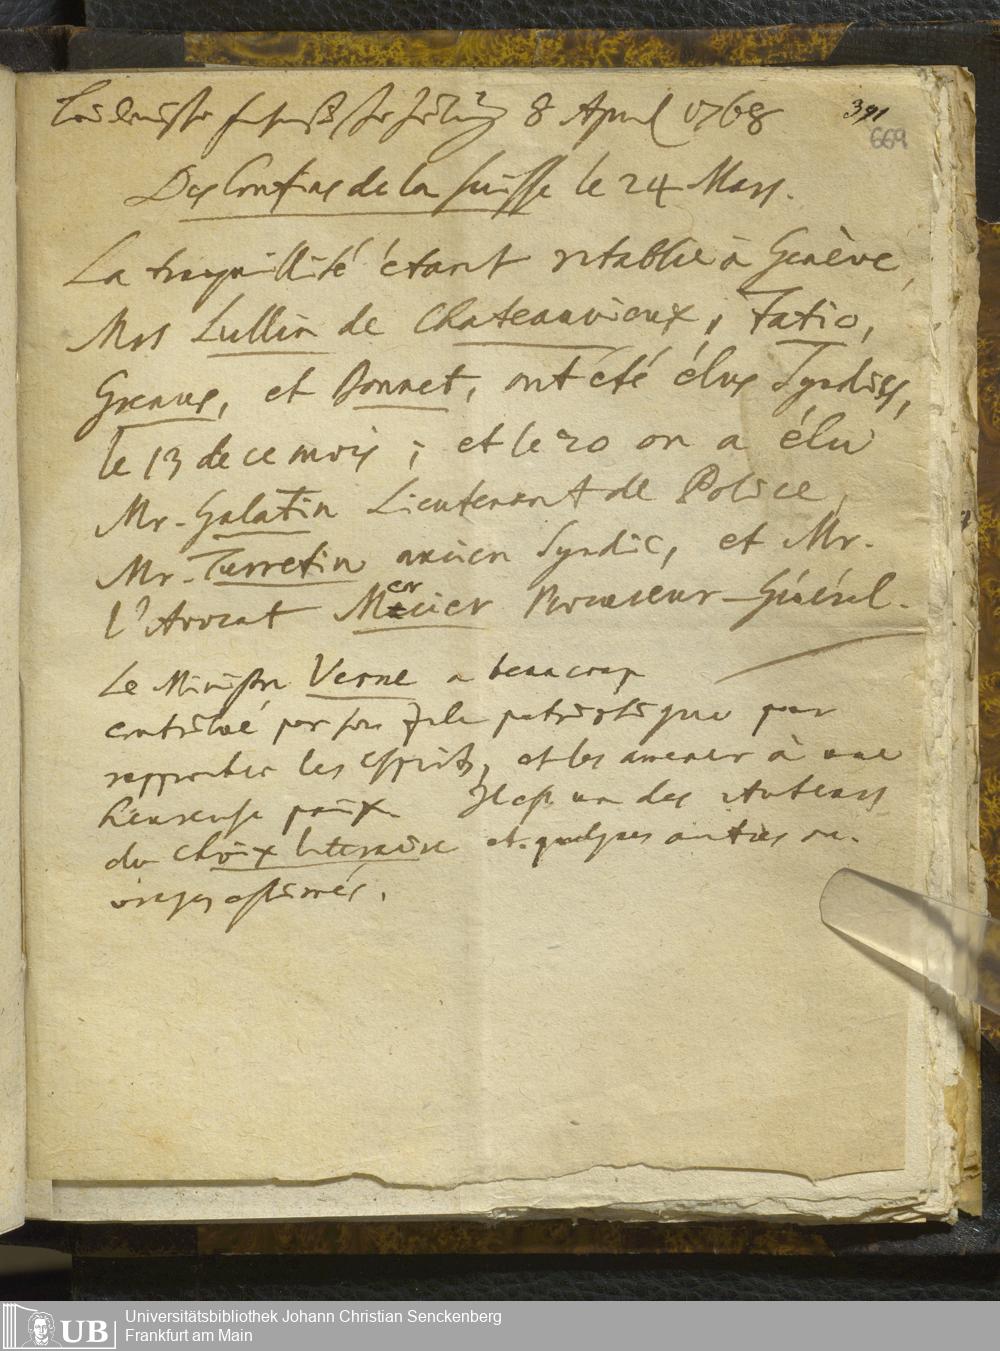 Leidenische französische Zeitung 8 April 1768
391
669
Des Confins de la Suisse le 24 Mars.
La tranquillité étant rétablie à Genève,
Mrs Lullin de Chateauvieux, Fatio,
Grenus, et Bonnet, ont été élus Syndics,
le 13 de ce mois; et le 20 on a élu
Mr. Galatin Lieutenant de Police,
Mr. Turretin ancien Syndic, et Mr.
l'Avocat Mercier Procureur-Général.
Le Ministre Verne a beaucoup
contribué par son Zele patriotique pour
rapprocher les esprits, et les amener à une
heureuse paix. Il est un des Auteurs
du Choix literaire et quelques autres ou-
vrages estimés.
Universitätsbibliothek Johann Christian Senckenberg
UB Frankfurt am Main